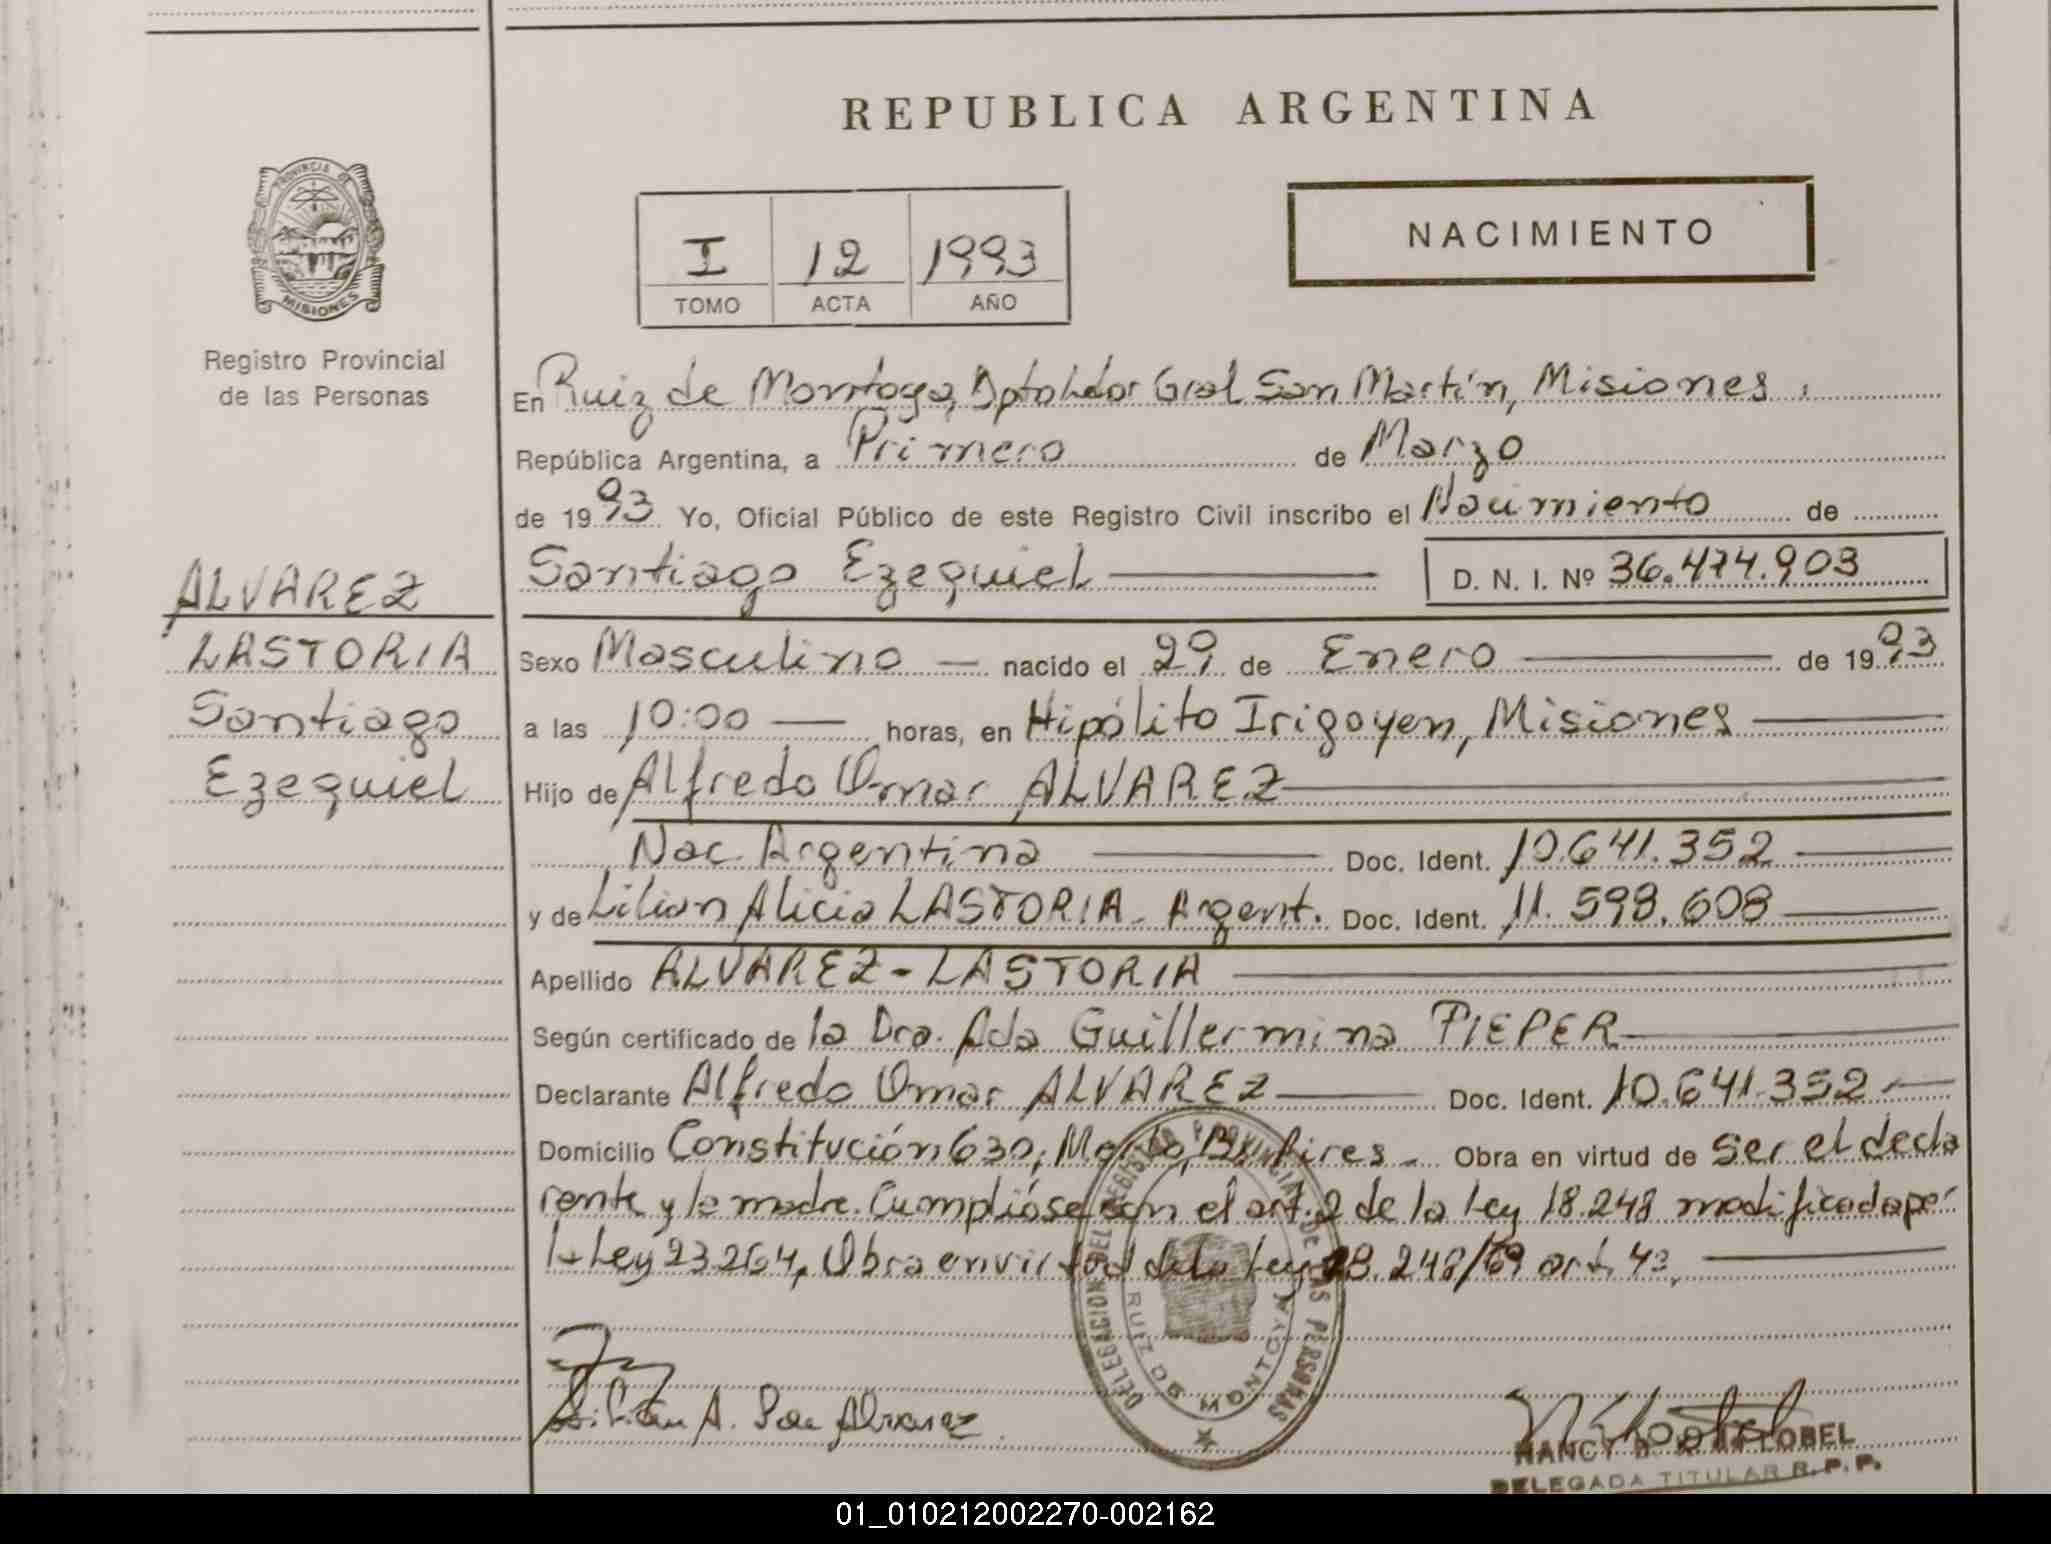 REPUBLICA ARGENTINA
PROVINCIA DE
MISIONES
Registro Provincial
de las Personas
I 12 1993
TOMO ACTA AÑO
NACIMIENTO
En Ruiz de Montoya, Dpto Ldor Gral San Martín, Misiones,
República Argentina, a Primero de Marzo
de 1993 Yo, Oficial Público de este Registro Civil inscribo el Nacimiento de
Santiago Ezequiel D. N. I. Nº 36.474.903
ALVAREZ
LASTORIA
Santiago
Ezequiel
Sexo Masculino nacido el 29 de Enero de 1993
a las 10:00 horas, en Hipólito Irigoyen, Misiones
Hijo de Alfredo Omar ALVAREZ
Nac. Argentina Doc. Ident. 10.641.352
y de Lilian Alicia LASTORIA - Argent. Doc. Ident. 11.598.608
Apellido ALVAREZ - LASTORIA
Según certificado de la Dra. Ada Guillermina PIEPER
Declarante Alfredo Omar ALVAREZ Doc. Ident. 10.641.352
Domicilio Constitución 630, Bs. Aires - Obra en virtud de Ser el decla
rante y la madre. Cumplióse con el art. 2 de la Ley 18.248 modificada por
la Ley 23264, Obra en virtud de la Ley 18.248/69 art. 4º
DELEGACION DEL REGISTRO PROVINCIAL DE LAS PERSONAS
RUIZ DE MONTOYA
Lilian A. de Alvarez
NANCY
DELEGADA TITULAR R.P.P.
01_010212002270-002162